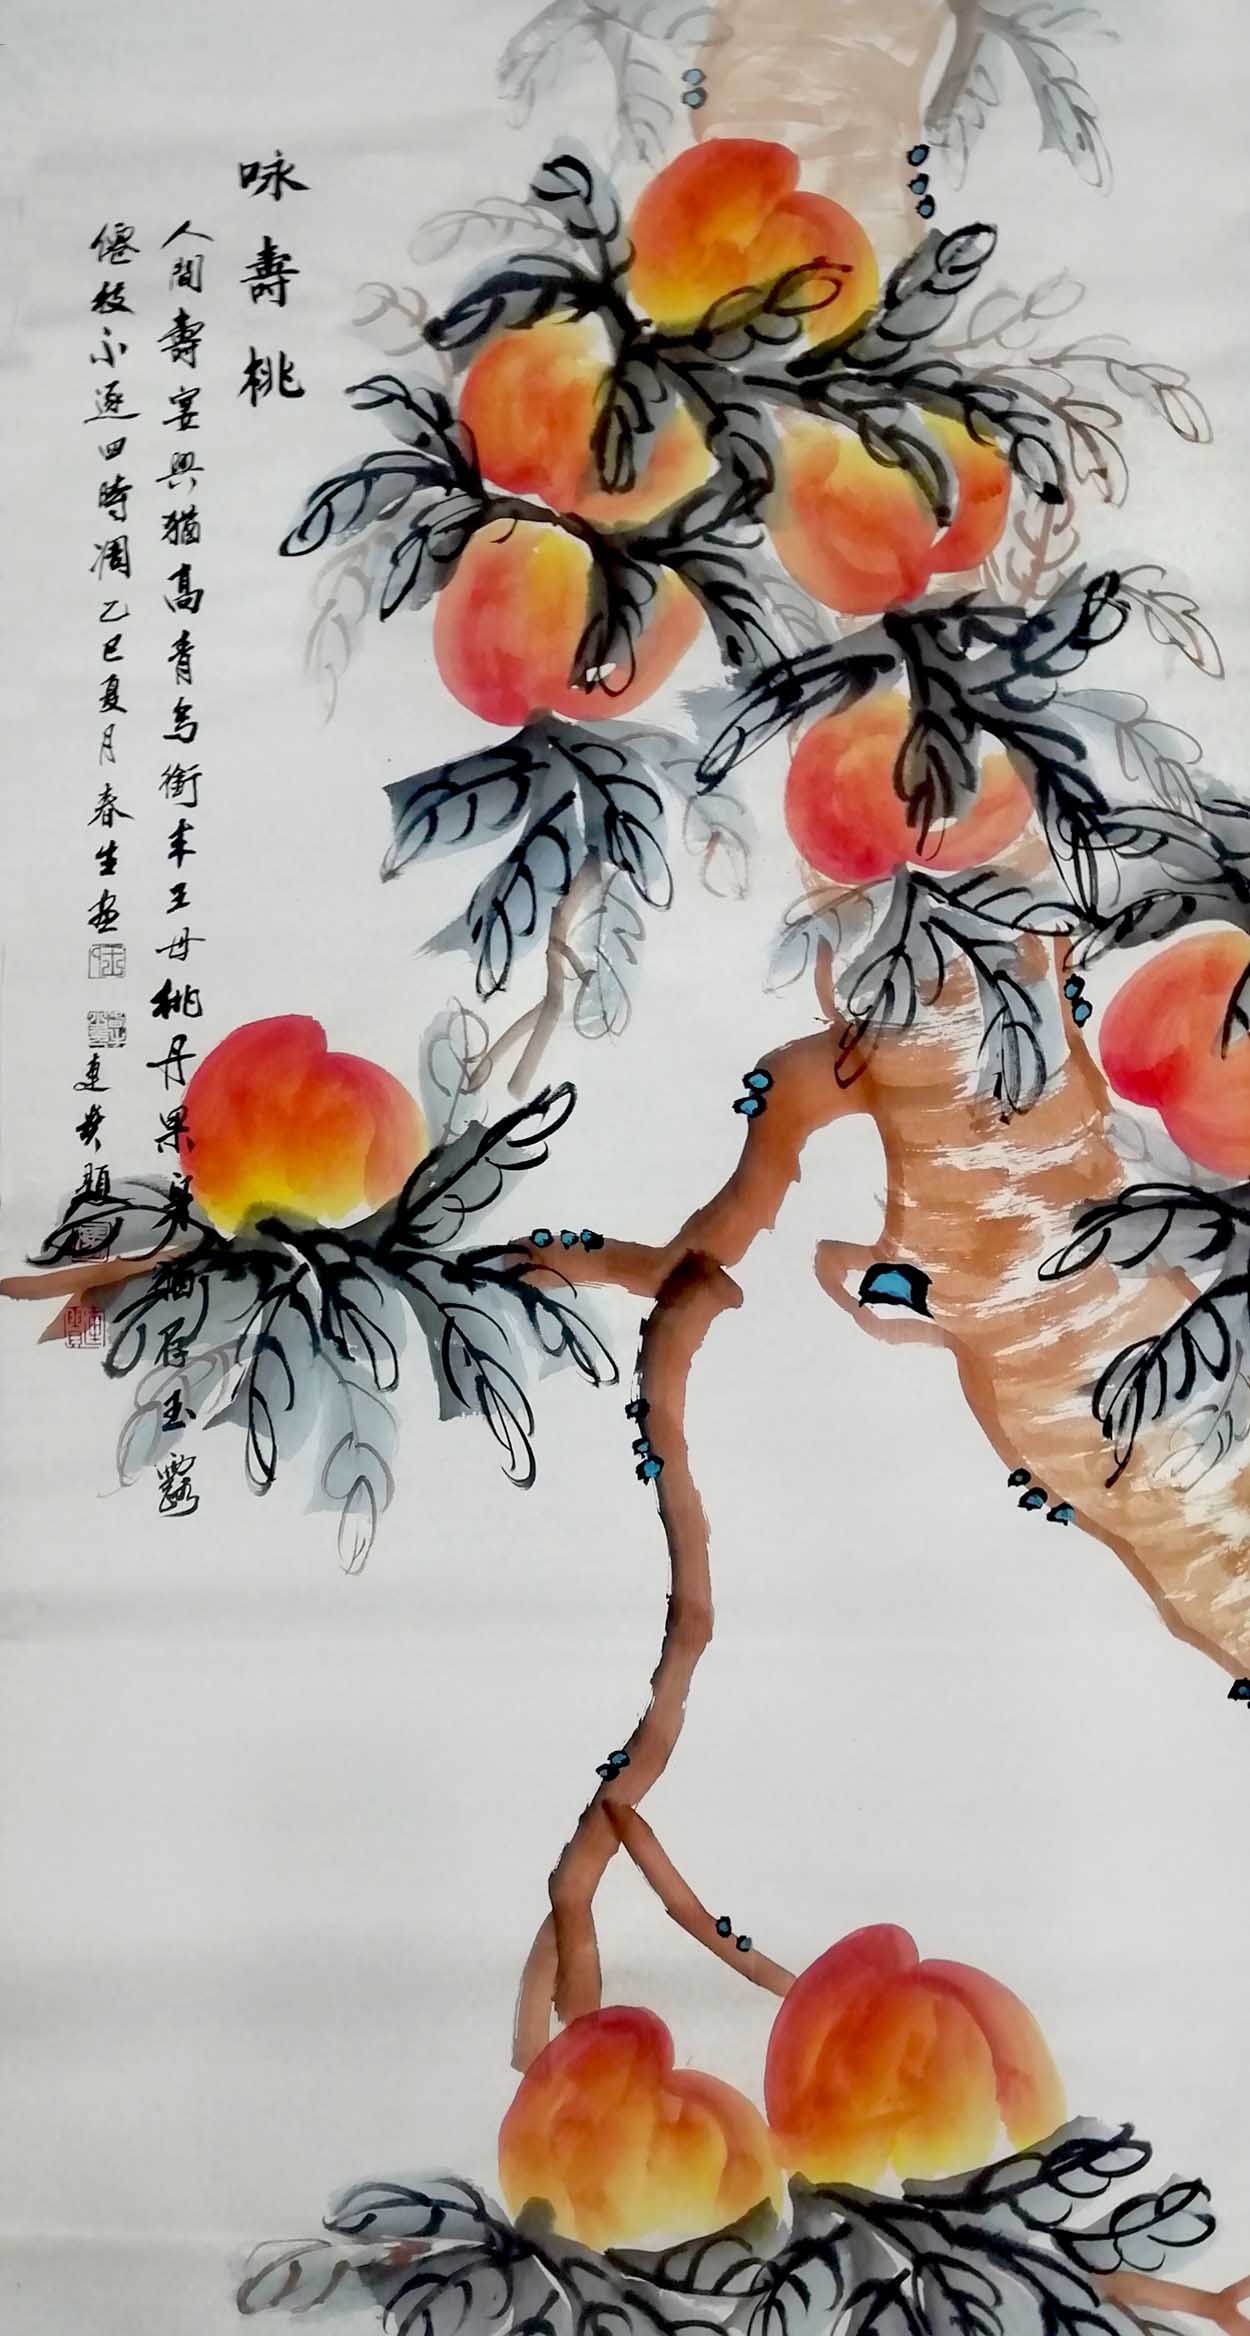 咏壽桃
人間壽宴興猶高青鳥銜來王母桃丹果朵猶存玉露
僊枝不逐四時凋乙巳夏月春生画
連貴題